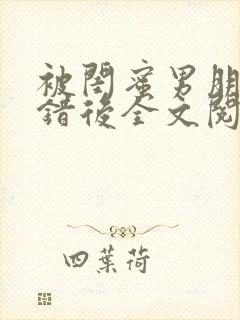 被閨蜜男朋
錯後全文閱
四葉荷